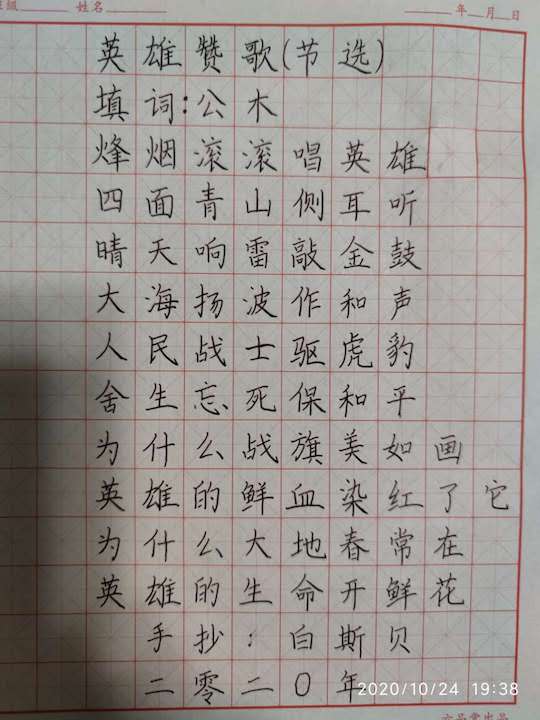 姓名
年 月 日
英雄赞歌(节选)
填词:公木
烽烟滚滚唱英雄
四面青山侧耳听
晴天响雷敲金鼓
大海扬波作和声
人民战士驱虎豹
舍生忘死保和平
为什么战旗美如画
英雄的鲜血染红了它
为什么大地春常在
英雄的生命开鲜花
手抄:白斯贝
二零二0年
2020/10/24 19:38